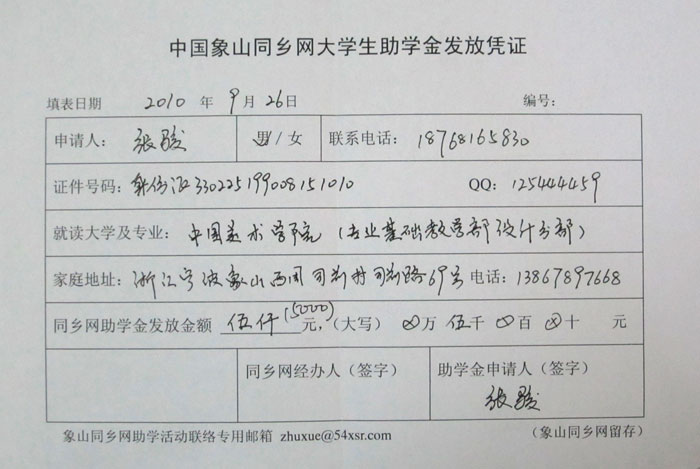 中国象山同乡网大学生助学金发放凭证
填表日期 2010 年 9 月 26 日 编号:
申请人: 张骏 男/女 联系电话: 18768165830
证件号码: 身份证 330225199008151010 QQ: 125444459
就读大学及专业: 中国美术学院(专业基础教学部设计分部)
家庭地址: 浙江宁波象山西周 路69号 电话: 13867897668
同乡网助学金发放金额 伍仟(5000)元,(大写) 万 伍千 百 十 元
同乡网经办人(签字) 助学金申请人(签字)
张骏
象山同乡网助学活动联络专用邮箱 zhuxue@54xsr.com (象山同乡网留存)